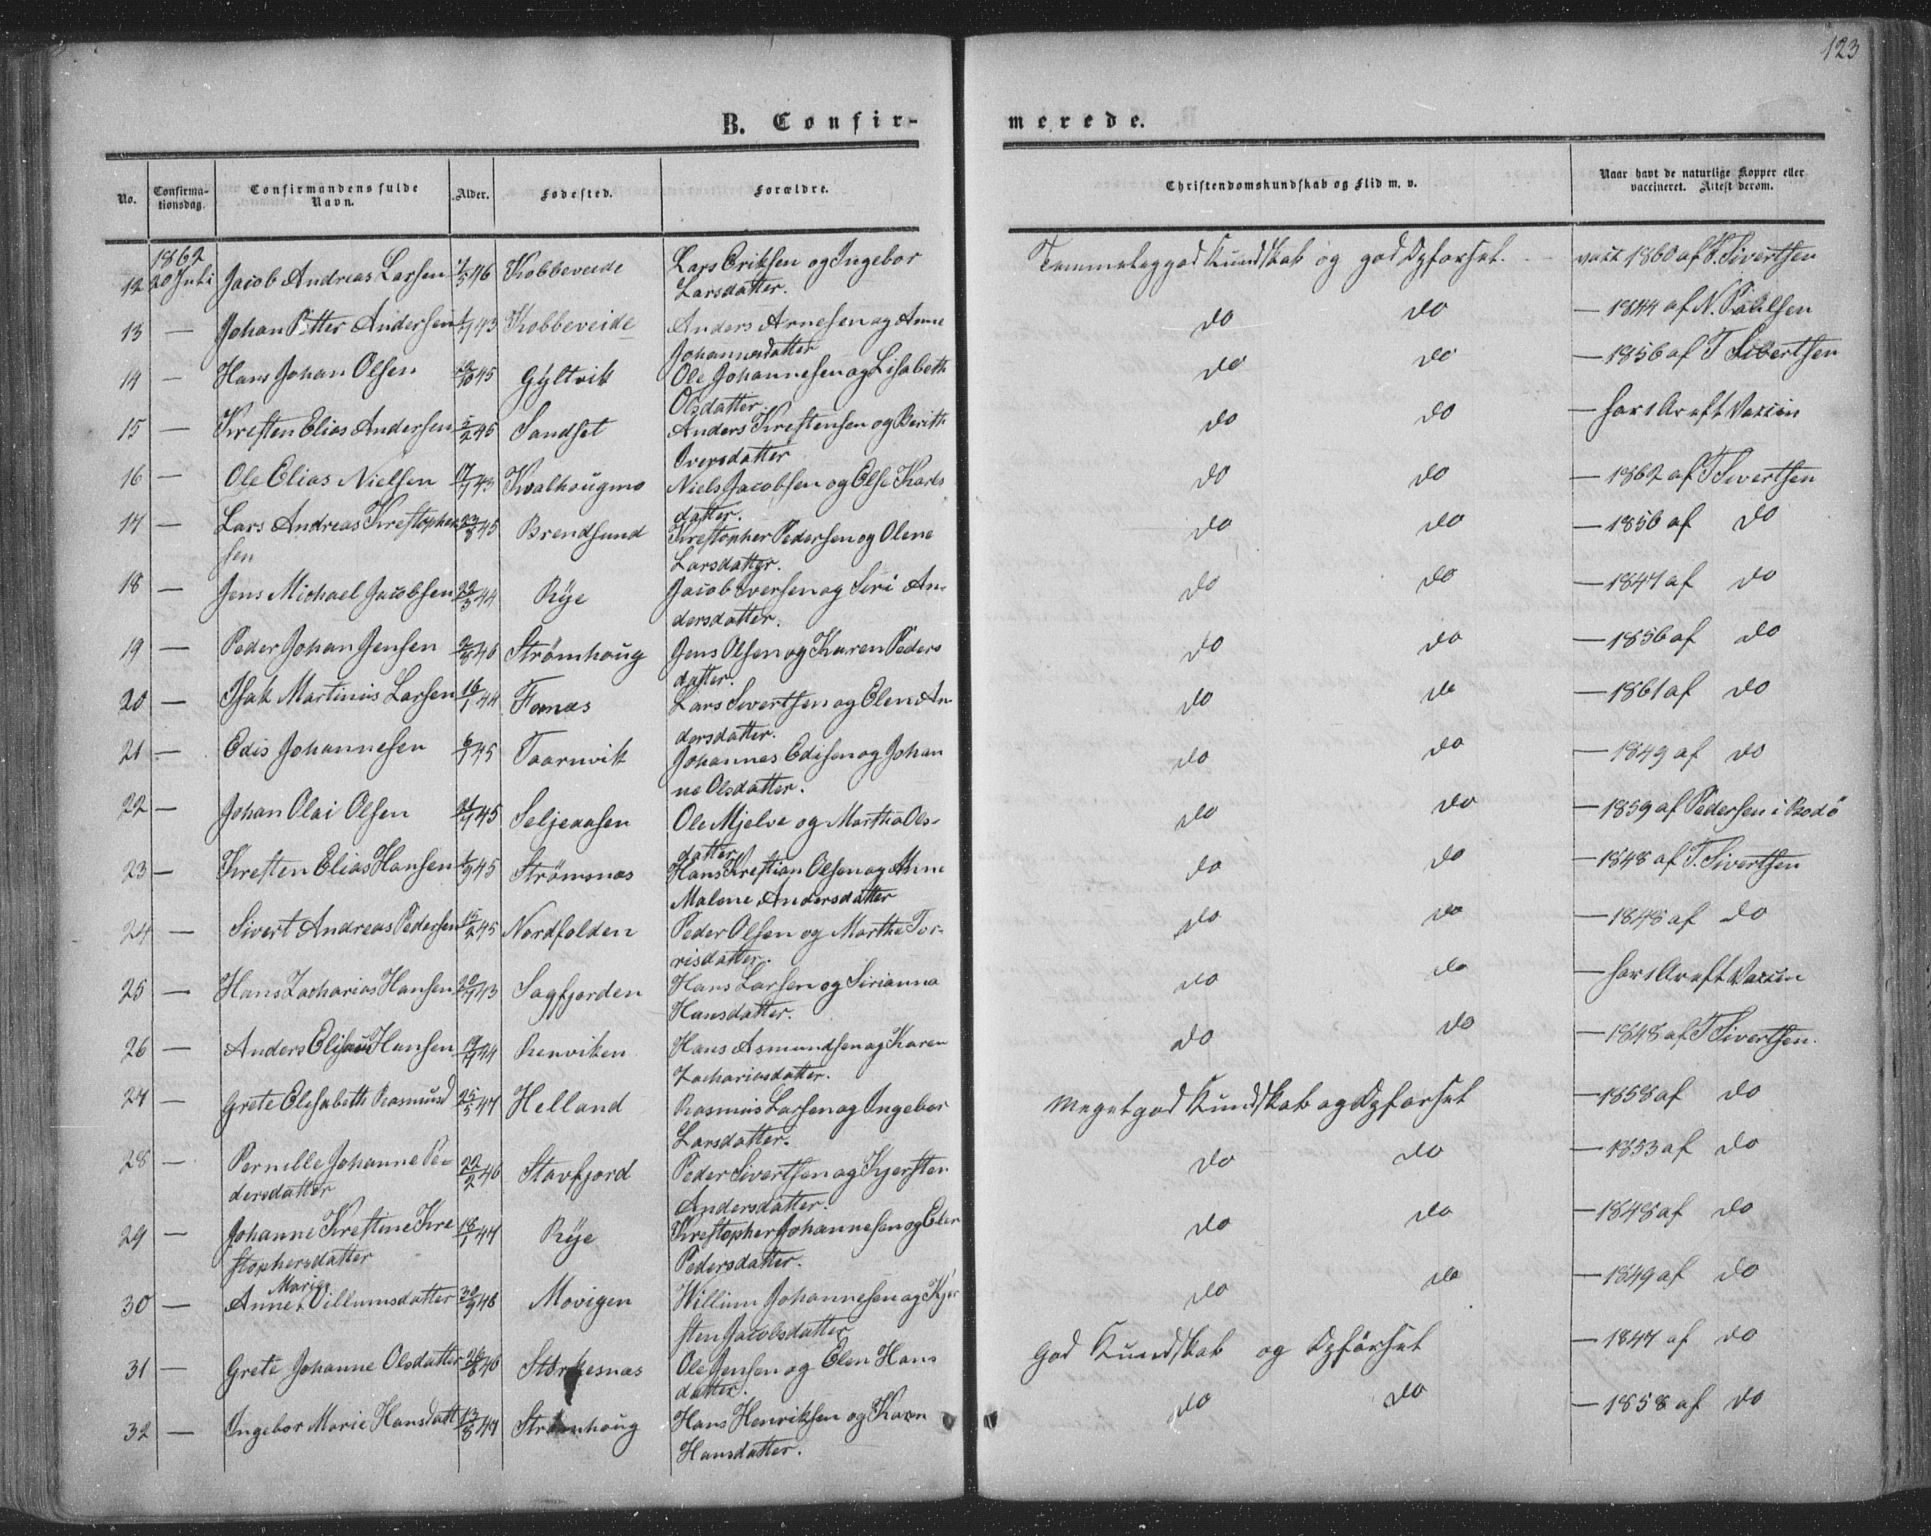 123
B. Confir-
merede.
No.
Confirma-
tionsdag.
Confirmandens fulde
Navn.
Alder.
Fødested.
Forældre.
Christendomskundskab og Flid m. v.
Naar havt de naturlige Kopper eller
vaccineret. Attest derom.
1862
12 20 Juli Jacob Andreas Larsen 46 Kobbeveide Lars Eriksen og Ingebor Temmeleg god Kundskab og god Opførsel. vacc 1860 af T. Sivertsen
Larsdatter.
13 — Johan Petter Andersen 43 Kobbeveide Anders Arnesen og Anne do do — 1844 af N. Paulsen
Johannesdatter
14 — Hans Johan Olsen 45 Gyltvik Ole Johannesen og Lisabeth do do — 1856 af T Sivertsen
Olsdatter.
15 — Kresten Elias Andersen 45 Sandset Anders Krestensen og Berith do do — har 1 Ar eft Vaccin
Iversdatter
16 — Ole Elias Nielsen 43 Kvalhougmo Niels Jacobsen og Else Karls do do — 1862 af T Sivertsen
datter.
17 — Lars Andreas Krestopher 45 Brendsund Krestopher Pedersen og Olene do do — 1856 af do
sen Larsdatter.
18 — Jens Michael Jacobsen 44 Rye Jacob Iversen og Siri An- do do — 1847 af do
dersdatter.
19 — Peder Johan Jensen 46 Strømhoug Jens Olsen og Karen Peders do do — 1856 af do
datter.
20 — Isak Martinus Larsen 16/1 44 Fornæs Lars Sivertsen og Elen An do do — 1861 af do
dersdatter.
21 — Edis Johannesen 45 Taarnvik Johannes Edisen og Johan do do — 1849 af do
ne Olsdatter.
22 — Johan Olai Olsen 45 Seljeaasen Ole Mjelve og Martha Ols- do do — 1859 af Pedersen i Bodö
datter
23 — Kresten Elias Hansen 45 Strømsnæs Hans Krestian Olsen og Anne do do — 1848 af T. Sivertsen
Malene Andersdatter
24 — Sivert Andreas Pedersen 45 Nordfolden Peder Olsen og Martha Tor- do do — 1848 af do
risdatter.
25 — Hans Zacharias Hansen 43 Sagfjorden Hans Larsen og Sirianna do do — har 1 Ar eft Vaccin
Hansdatter.
26 — Anders Elisæus Hansen 44 Renviken Hans Asmundsen og Karen do do — 1848 af T Sivertsen.
Zachariasdatter.
27 — Grete Elisabeth Rasmusd 25/5 47 Helland Rasmus Larsen og Ingebor Meget god Kundskab og Opførsel — 1858 af do
Larsdatter.
28 — Pernille Johanne Pe- 22/2 46 Stavfjord Peder Sivertsen og Kjersten do do — 1853 af do
dersdatter Andersdatter.
29 — Johanne Krestine Kre 18/1 47 Rye Krestopher Johannesen og Elen do do — 1848 af do
stophersdatter Pedersdatter.
Marie
30 — Anne Villumsdatter 30/9 46 Movigen Willium Johannesen og Kjer do do — 1849 af do
sten Jacobsdatter
31 — Grete Johanne Olsdatter 46 Storkesnæs Ole Jensen og Elen Hans God Kundskab og Opförsel — 1847 af do
datter.
32 — Ingebor Marie Hansdatt 13/8 47 Strømhoug Hans Henriksen og Karen do do — 1858 af do
Hansdatter.